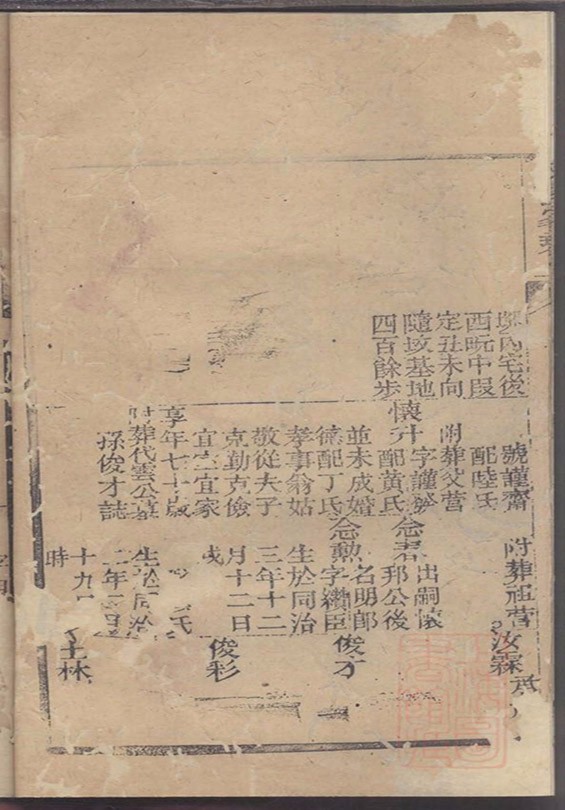 宅後
西畈中段
定丑未向
隨坟基地
四百餘步
號謹齋
配陸氏
附葬父塋
懷升
字謹
配黃氏
並未成婚
德配丁氏
孝事翁姑
敬從夫子
克勤克儉
宜室宜家
享年七十歲
附葬代雲公墓
孫俊才誌
附葬祖塋
出嗣懷
邦公後
名明郎
念勳
字纘臣
生於同治
三年十二
月十二日
氏
生於同治
二年
十九
時
汝霖
俊才
俊彩
士林